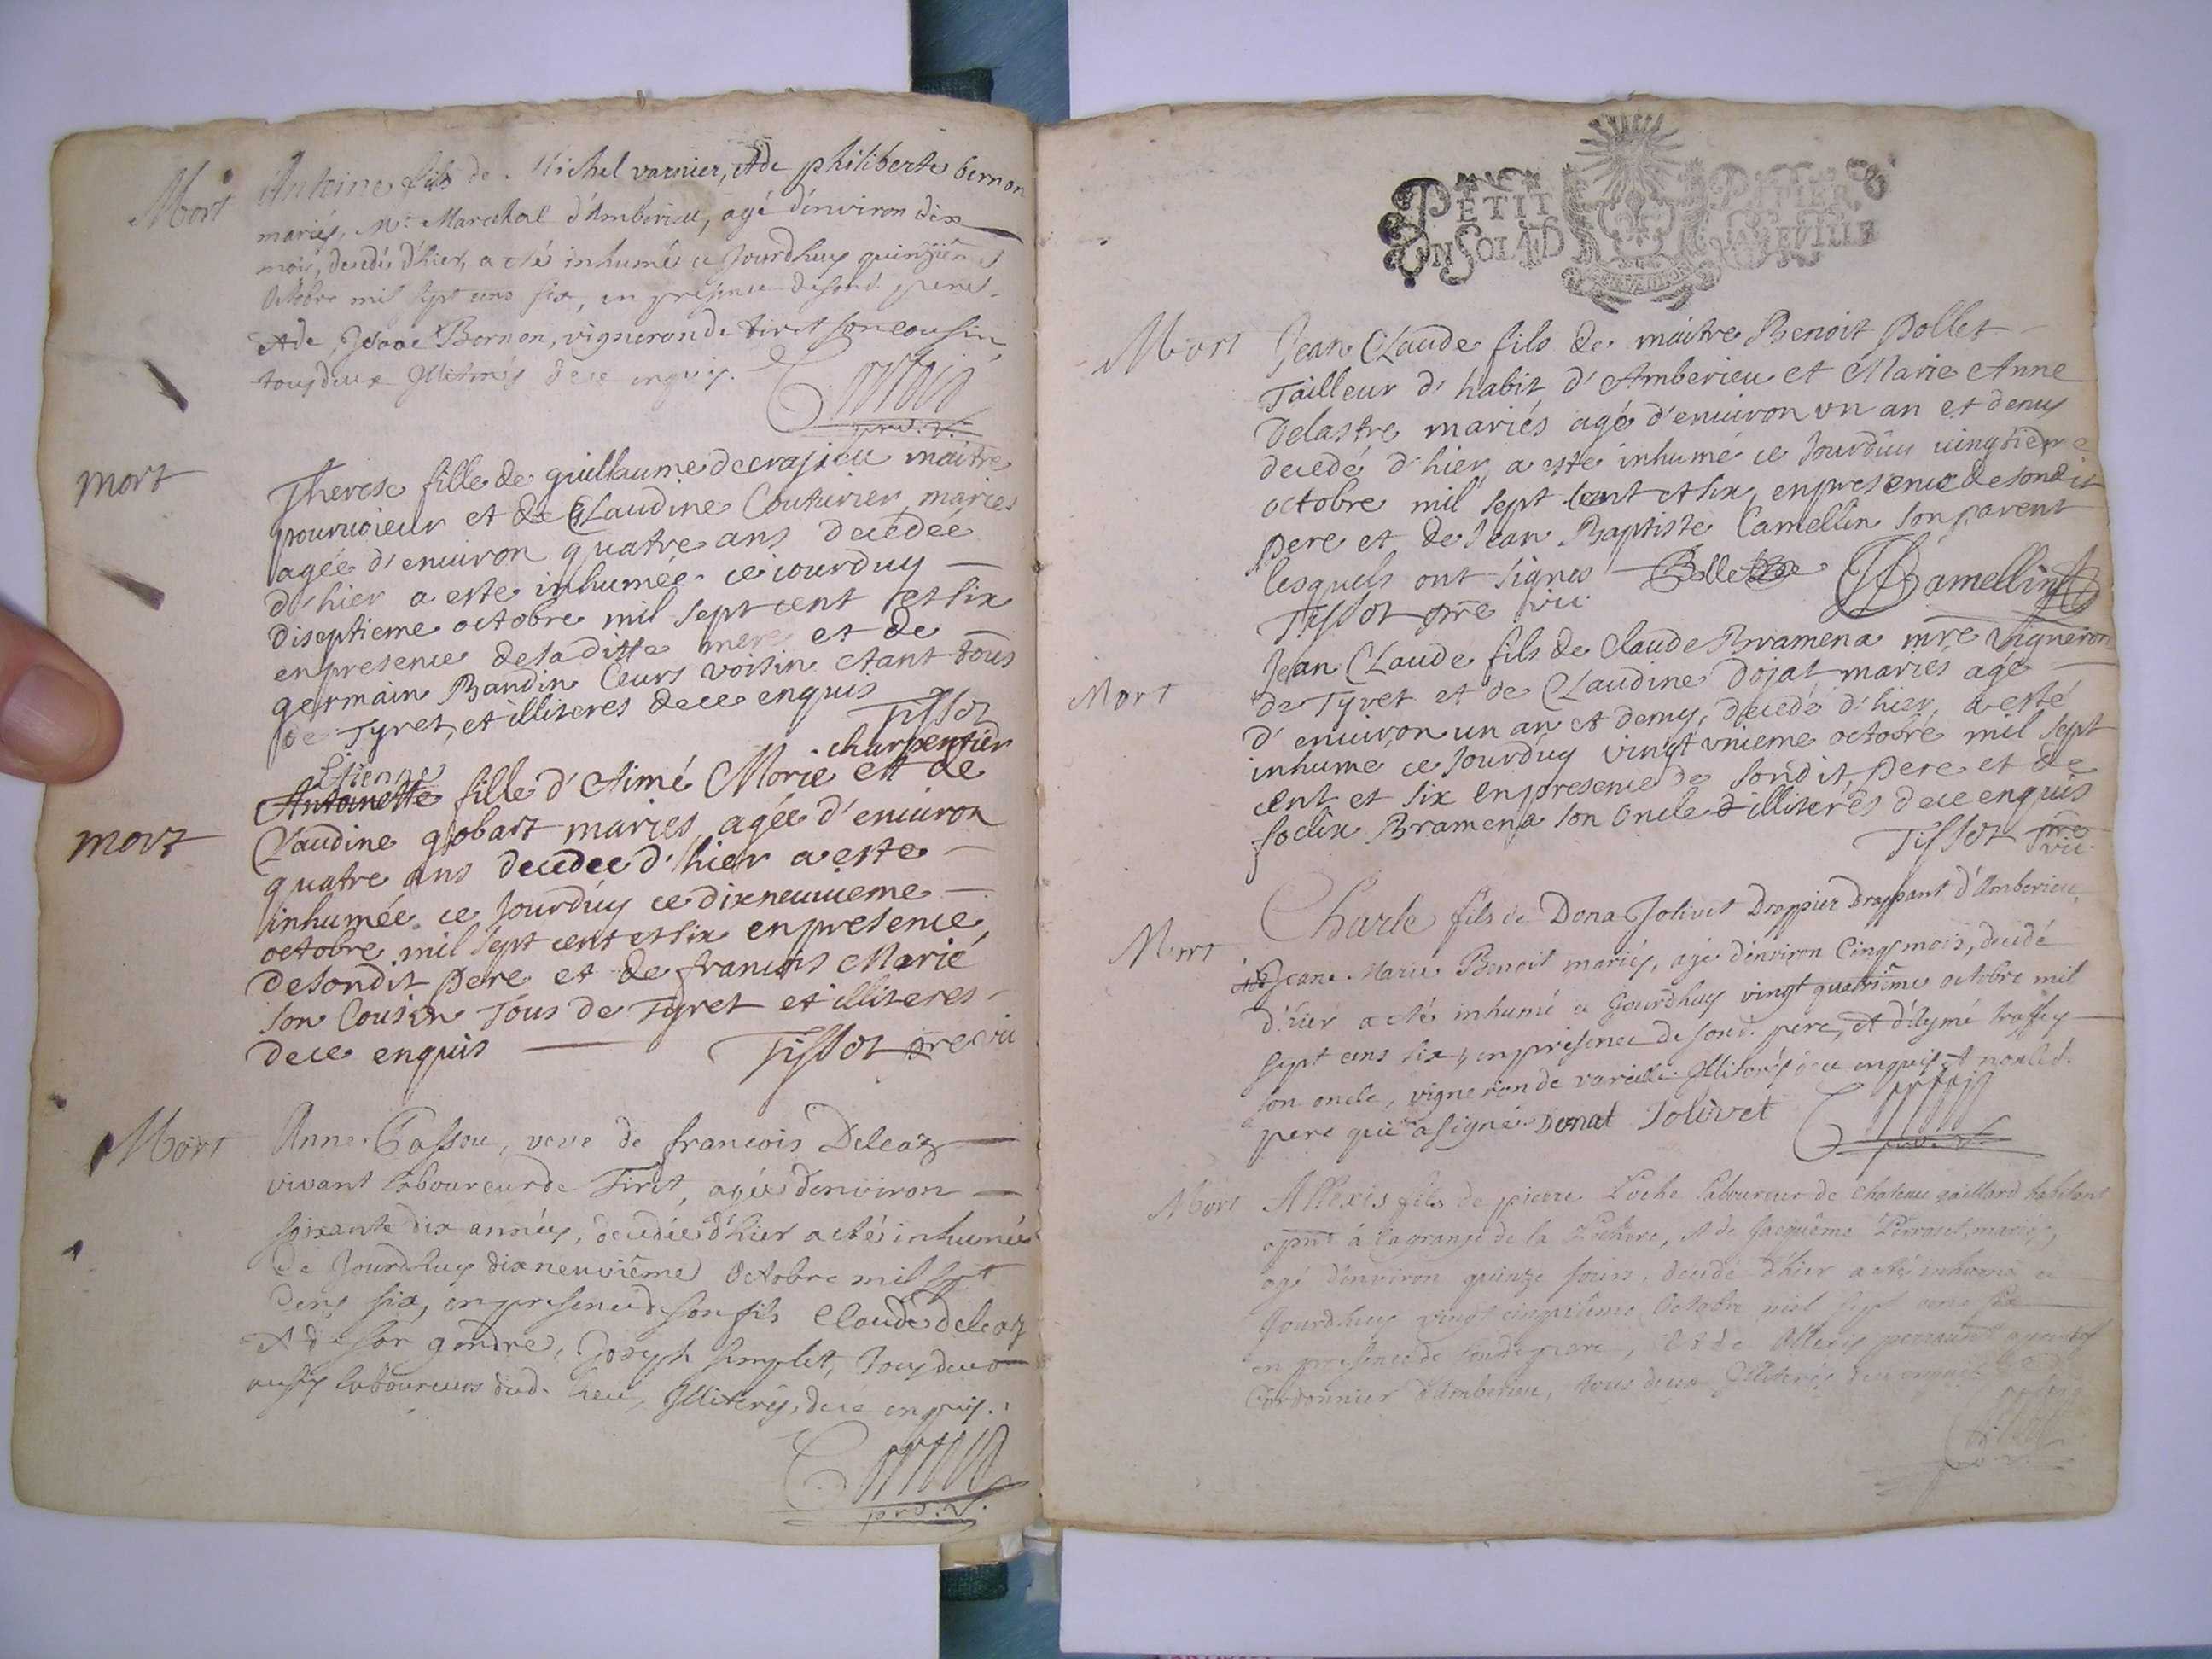 Mort
Antoine fils de Michel varnier, et de philiberte bernon
mariés, Me Marechal d'Amberieu, agé d'environ dix
mois, decedé d'hier, a eté inhumé ce Jourdhuy quinziéme
Octobre mil sept cens six, en presence de sond. pere
et de, Bernon, vigneron de tiret son cousin,
tous deux Illiterés de ce enquis.
prd. V.
mort
Therese fille de guillaume decrasieu maitre
pourvoieur et de Claudine Couturier mariés
agée d'enuiron quatre ans decedée
d'hier a este inhumée ce iourduy
diseptieme octobre mil sept cent et six
en presence de sa ditte mere et de
germain Bandin leurs voisin etant tous
de Tyret, et illiteres de ce enquis
Tissot
charpentier
Etienne
Antoinette fille d'Aimé Morie et de
mort
Claudine gobart maries, agée d'enuiron
quatre ans decedee d'hier a este
inhumée ce Jourduy ce dixneuuieme
octobre mil sept cent et six en presence
de sondit pere et de francois Marié
son Cousin Tous de Tyret et illiteres
de ce enquis Tissot pre vic
Mort
Anne, veve de francois Deleaz
vivant laboureur de Tiret, agée d'environ
soixante dix années, decedée d'hier a eté inhumée
Ce Jourdhuy dixneuviéme Octobre mil sept
Cens six, en presence de son fils Claude deleaz
Et de son gendre, Joseph simplet, Tous deux
aussy laboureurs dud. lieu, Illiterés, de ce enquis.
prd. V.
Mort
Jean Claude fils de maitre Benoit Pollet
Tailleur d'habit d'Amberieu et Marie Anne
Delastre mariés agé d'enuiron vn an et demy
decedé d'hier a este inhumé ce Jourduy uingtieme
octobre mil sept cent et six, en presence de sondit
pere et de Jean Baptiste Camellin son parent
lesquels ont signes Pollet JBCamellin
Tissot pre vic.
Jean Claude fils de Claude Bramena mre Vigneron
Mort
de Tyret et de Claudine Dojat mariés agé
d'enuiron un an et demy, decedé d'hier, a esté
inhume ce Jourduy vingt vnieme octobre mil sept
cent et six en presence de sondit pere et de
foelix Bramena son Oncle illiterés de ce enquis
Tissot pre
vic.
Charle fils de Dona Jolivet Drappier Drappant d'Amberieu,
Mort
et de Jeane Marie Benoit mariés, agé d'environ Cinq mois, decedé
d'hier a eté inhumé ce Jourdhuy vingt quatriéme octobre mil
sept cens six, en presence de sond. pere, et d'Aymé traffey
son oncle, vigneron de vareille Illiterés de ce enquis et non led.
pere qui a signé Donat Jolivet
prd. V.
Mort
Allexis fils de pierre Loche laboureur de Chateau gaillard habitant
a pnt à la grange de la Rochere, et de Jacquéme Perraset, mariés,
agé d'environ quinze jours, decedé d'hier a eté inhumé ce
Jourdhuy vingt cinquiéme Octobre mil sept cens six
en presence de sondit pere, et de Allexis
Cordonnier d'Amberieu, tous deux Illiterés de ce enquis